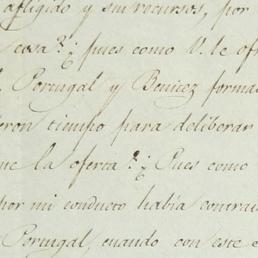 afligido y sin recursos, por
cosa? ¿pues como V. le ofr
Portugal y Benitez forma
ron tiempo para deliberar
ue la oferta? ¿Pues como
por mi conducto habia contrai
Portugal, cuando con este